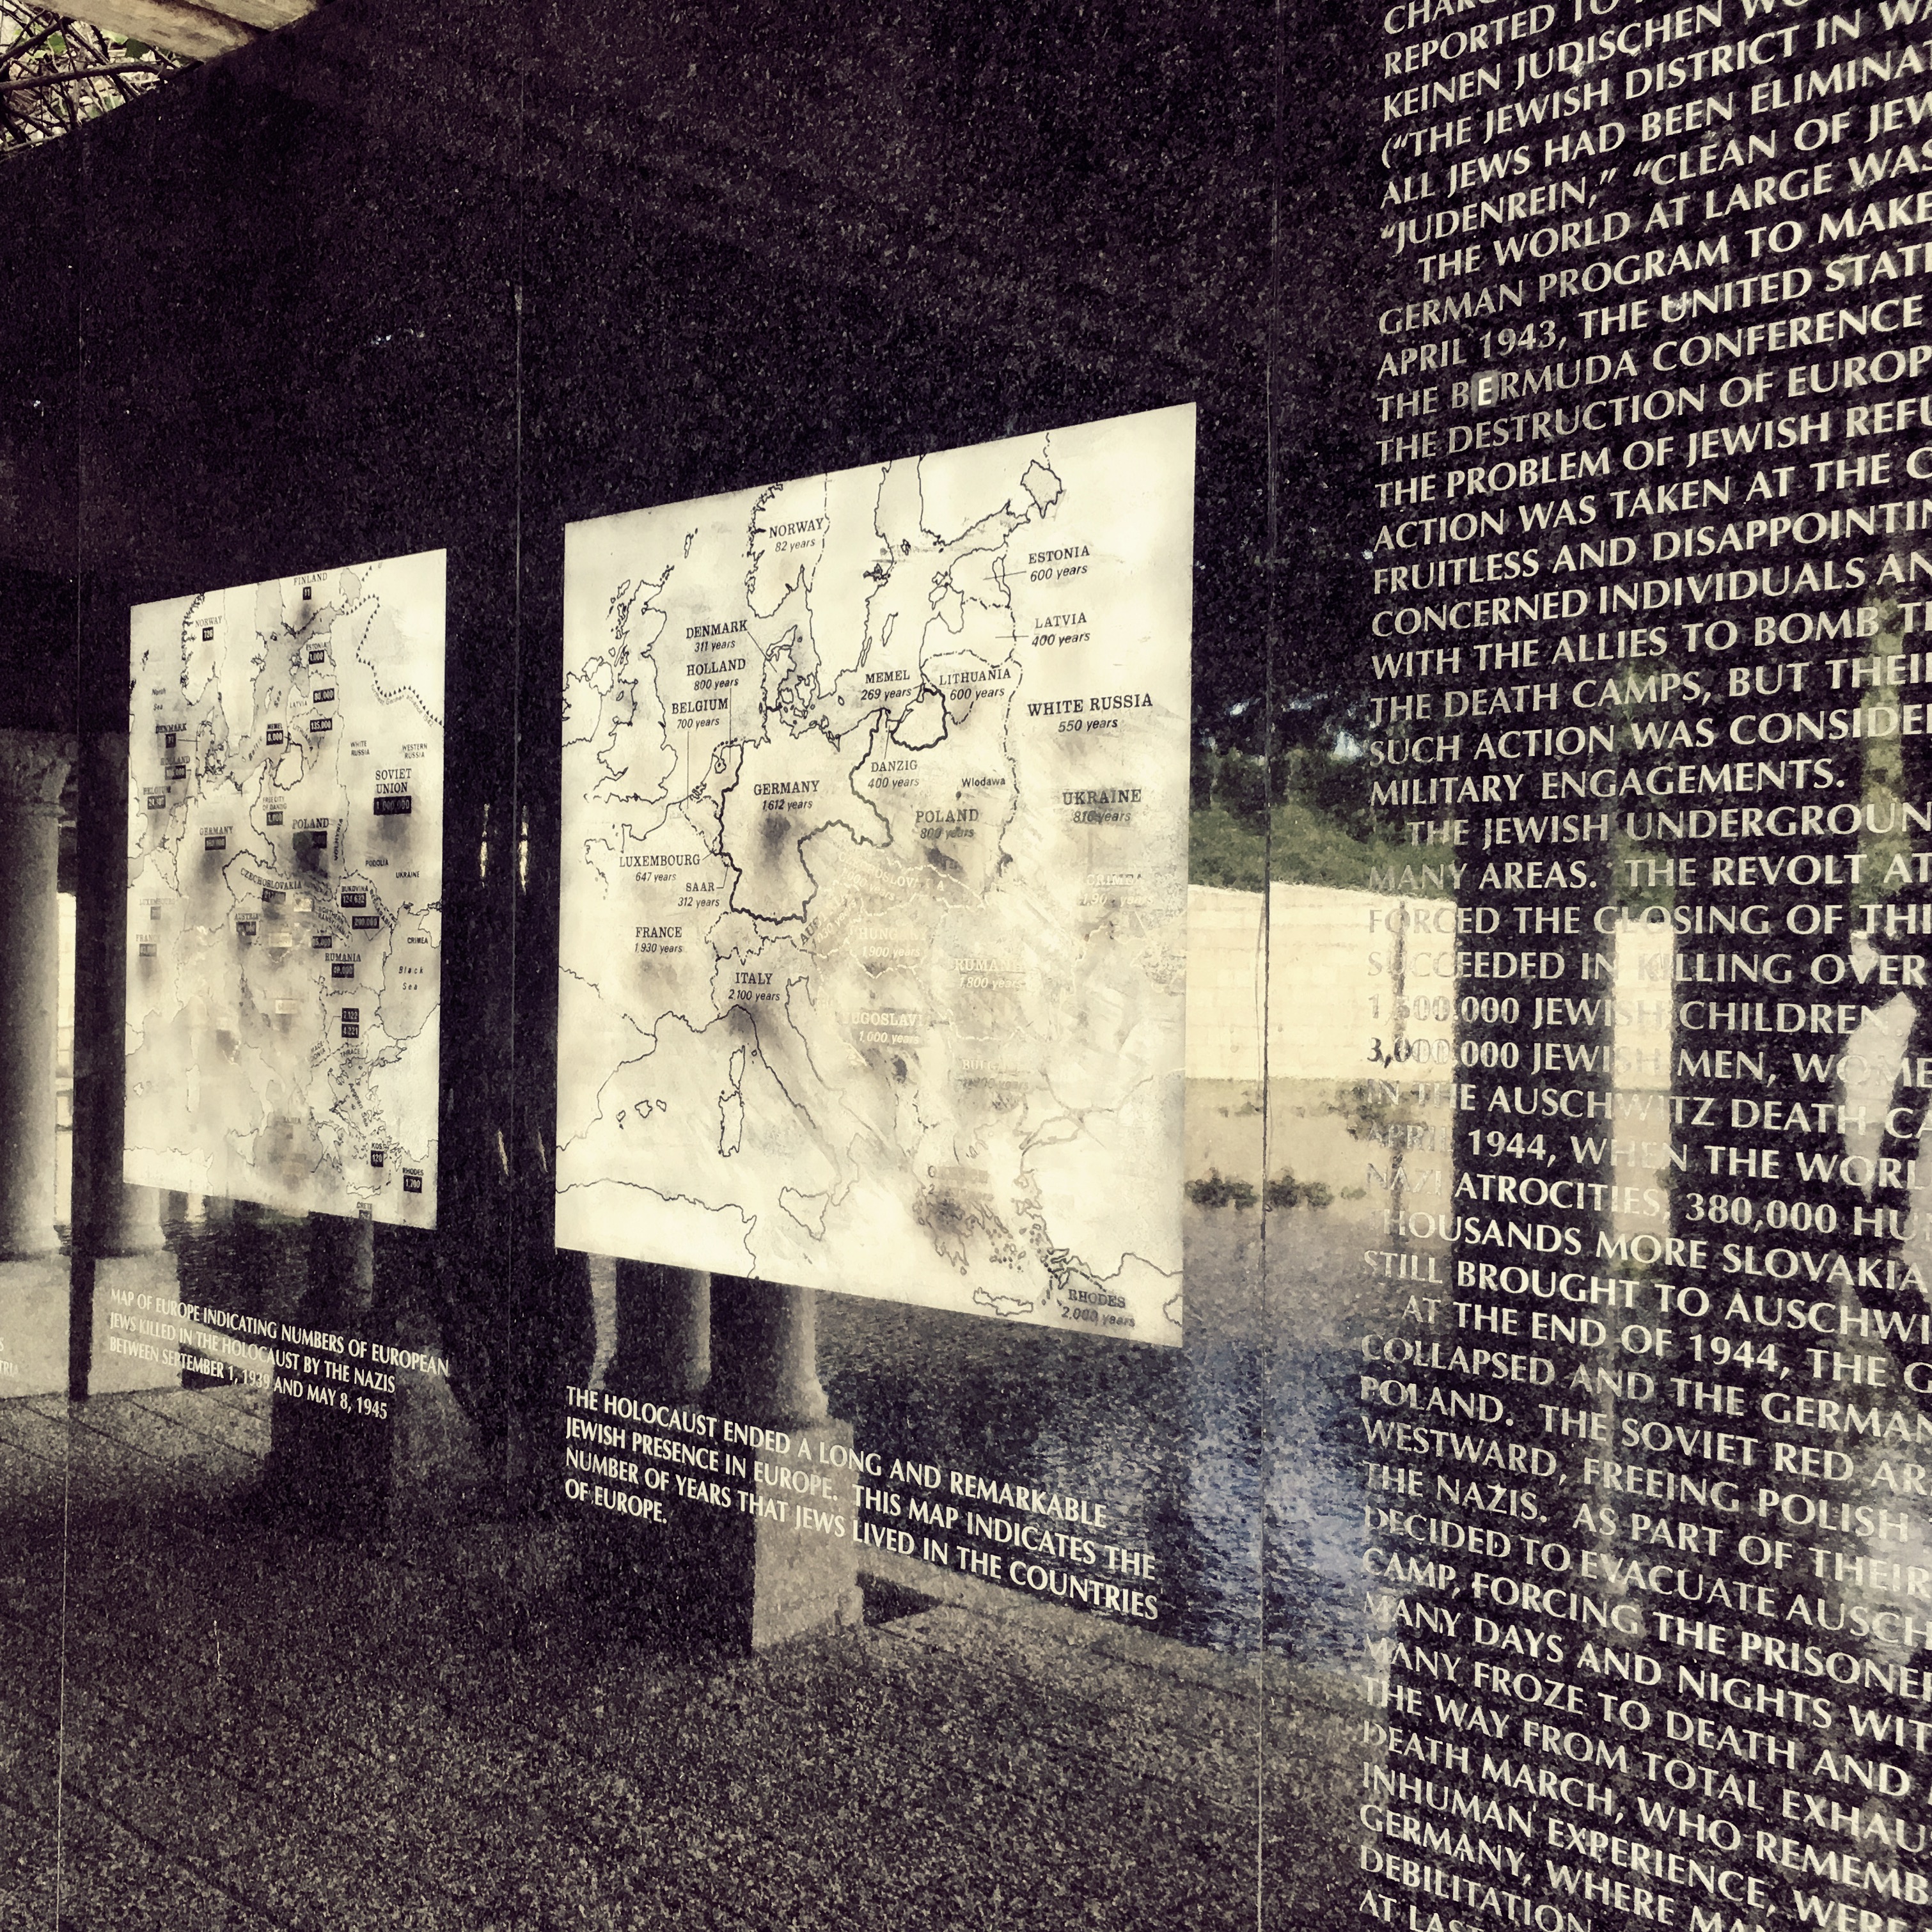 FINLAND
NORWAY
ESTONIA
1,000
LATVIA
80,000
135,000
MEMEL
8,000
North
Sea
DENMARK
HOLLAND
WHITE
RUSSIA
WESTERN
RUSSIA
SOVIET
UNION
1,000,000
FREE CITY
OF DANZIG
1,000
GERMANY
POLAND
PODOLIA
UKRAINE
CZECHOSLOVAKIA
BUKOVINA
124,632
AUSTRIA
200,000
CRIMEA
RUMANIA
40,000
Black
Sea
7,122
4,221
KOS
120
RHODES
1,700
CRETE
MAP OF EUROPE INDICATING NUMBERS OF EUROPEAN
JEWS KILLED IN THE HOLOCAUST BY THE NAZIS
BETWEEN SEPTEMBER 1, 1939 AND MAY 8, 1945
NORWAY
82 years
ESTONIA
600 years
LATVIA
400 years
DENMARK
311 years
HOLLAND
800 years
BELGIUM
700 years
MEMEL
269 years
LITHUANIA
600 years
WHITE RUSSIA
550 years
DANZIG
400 years
Wlodawa
GERMANY
1 612 years
POLAND
800 years
UKRAINE
810 years
LUXEMBOURG
647 years
SAAR
312 years
CRIMEA
FRANCE
1 930 years
HUNGARY
1 900 years
ITALY
2 100 years
RUMANIA
1 800 years
YUGOSLAVIA
1,000 years
RHODES
2,000 years
THE HOLOCAUST ENDED A LONG AND REMARKABLE
JEWISH PRESENCE IN EUROPE. THIS MAP INDICATES THE
NUMBER OF YEARS THAT JEWS LIVED IN THE COUNTRIES
OF EUROPE.
REPORTED TO
KEINEN JUDISCHEN
("THE JEWISH DISTRICT IN
ALL JEWS HAD BEEN ELIMINA
"JUDENREIN," "CLEAN OF JEW
THE WORLD AT LARGE WAS
GERMAN PROGRAM TO MAKE
APRIL 1943, THE UNITED STATE
THE BERMUDA CONFERENCE
THE DESTRUCTION OF EUROP
THE PROBLEM OF JEWISH REFU
ACTION WAS TAKEN AT THE C
FRUITLESS AND DISAPPOINTIN
CONCERNED INDIVIDUALS AN
WITH THE ALLIES TO BOMB T
THE DEATH CAMPS, BUT THEIR
SUCH ACTION WAS CONSIDE
MILITARY ENGAGEMENTS.
THE JEWISH UNDERGROUN
MANY AREAS. THE REVOLT AT
FORCED THE CLOSING OF THE
SUCCEEDED IN KILLING OVER
1,500,000 JEWISH CHILDREN
3,000,000 JEWISH MEN, WOME
IN THE AUSCHWITZ DEATH CA
APRIL 1944, WHEN THE WORL
NAZI ATROCITIES, 380,000 HU
THOUSANDS MORE SLOVAKIA
STILL BROUGHT TO AUSCHWI
AT THE END OF 1944, THE G
COLLAPSED AND THE GERMAN
POLAND. THE SOVIET RED AR
WESTWARD, FREEING POLISH
THE NAZIS. AS PART OF THEIR
DECIDED TO EVACUATE AUSCH
CAMP, FORCING THE PRISONE
MANY DAYS AND NIGHTS WIT
MANY FROZE TO DEATH AND
THE WAY FROM TOTAL EXHAU
DEATH MARCH, WHO REMEMB
INHUMAN EXPERIENCE, WERE
GERMANY, WHERE
DEBILITATION
AT LAST